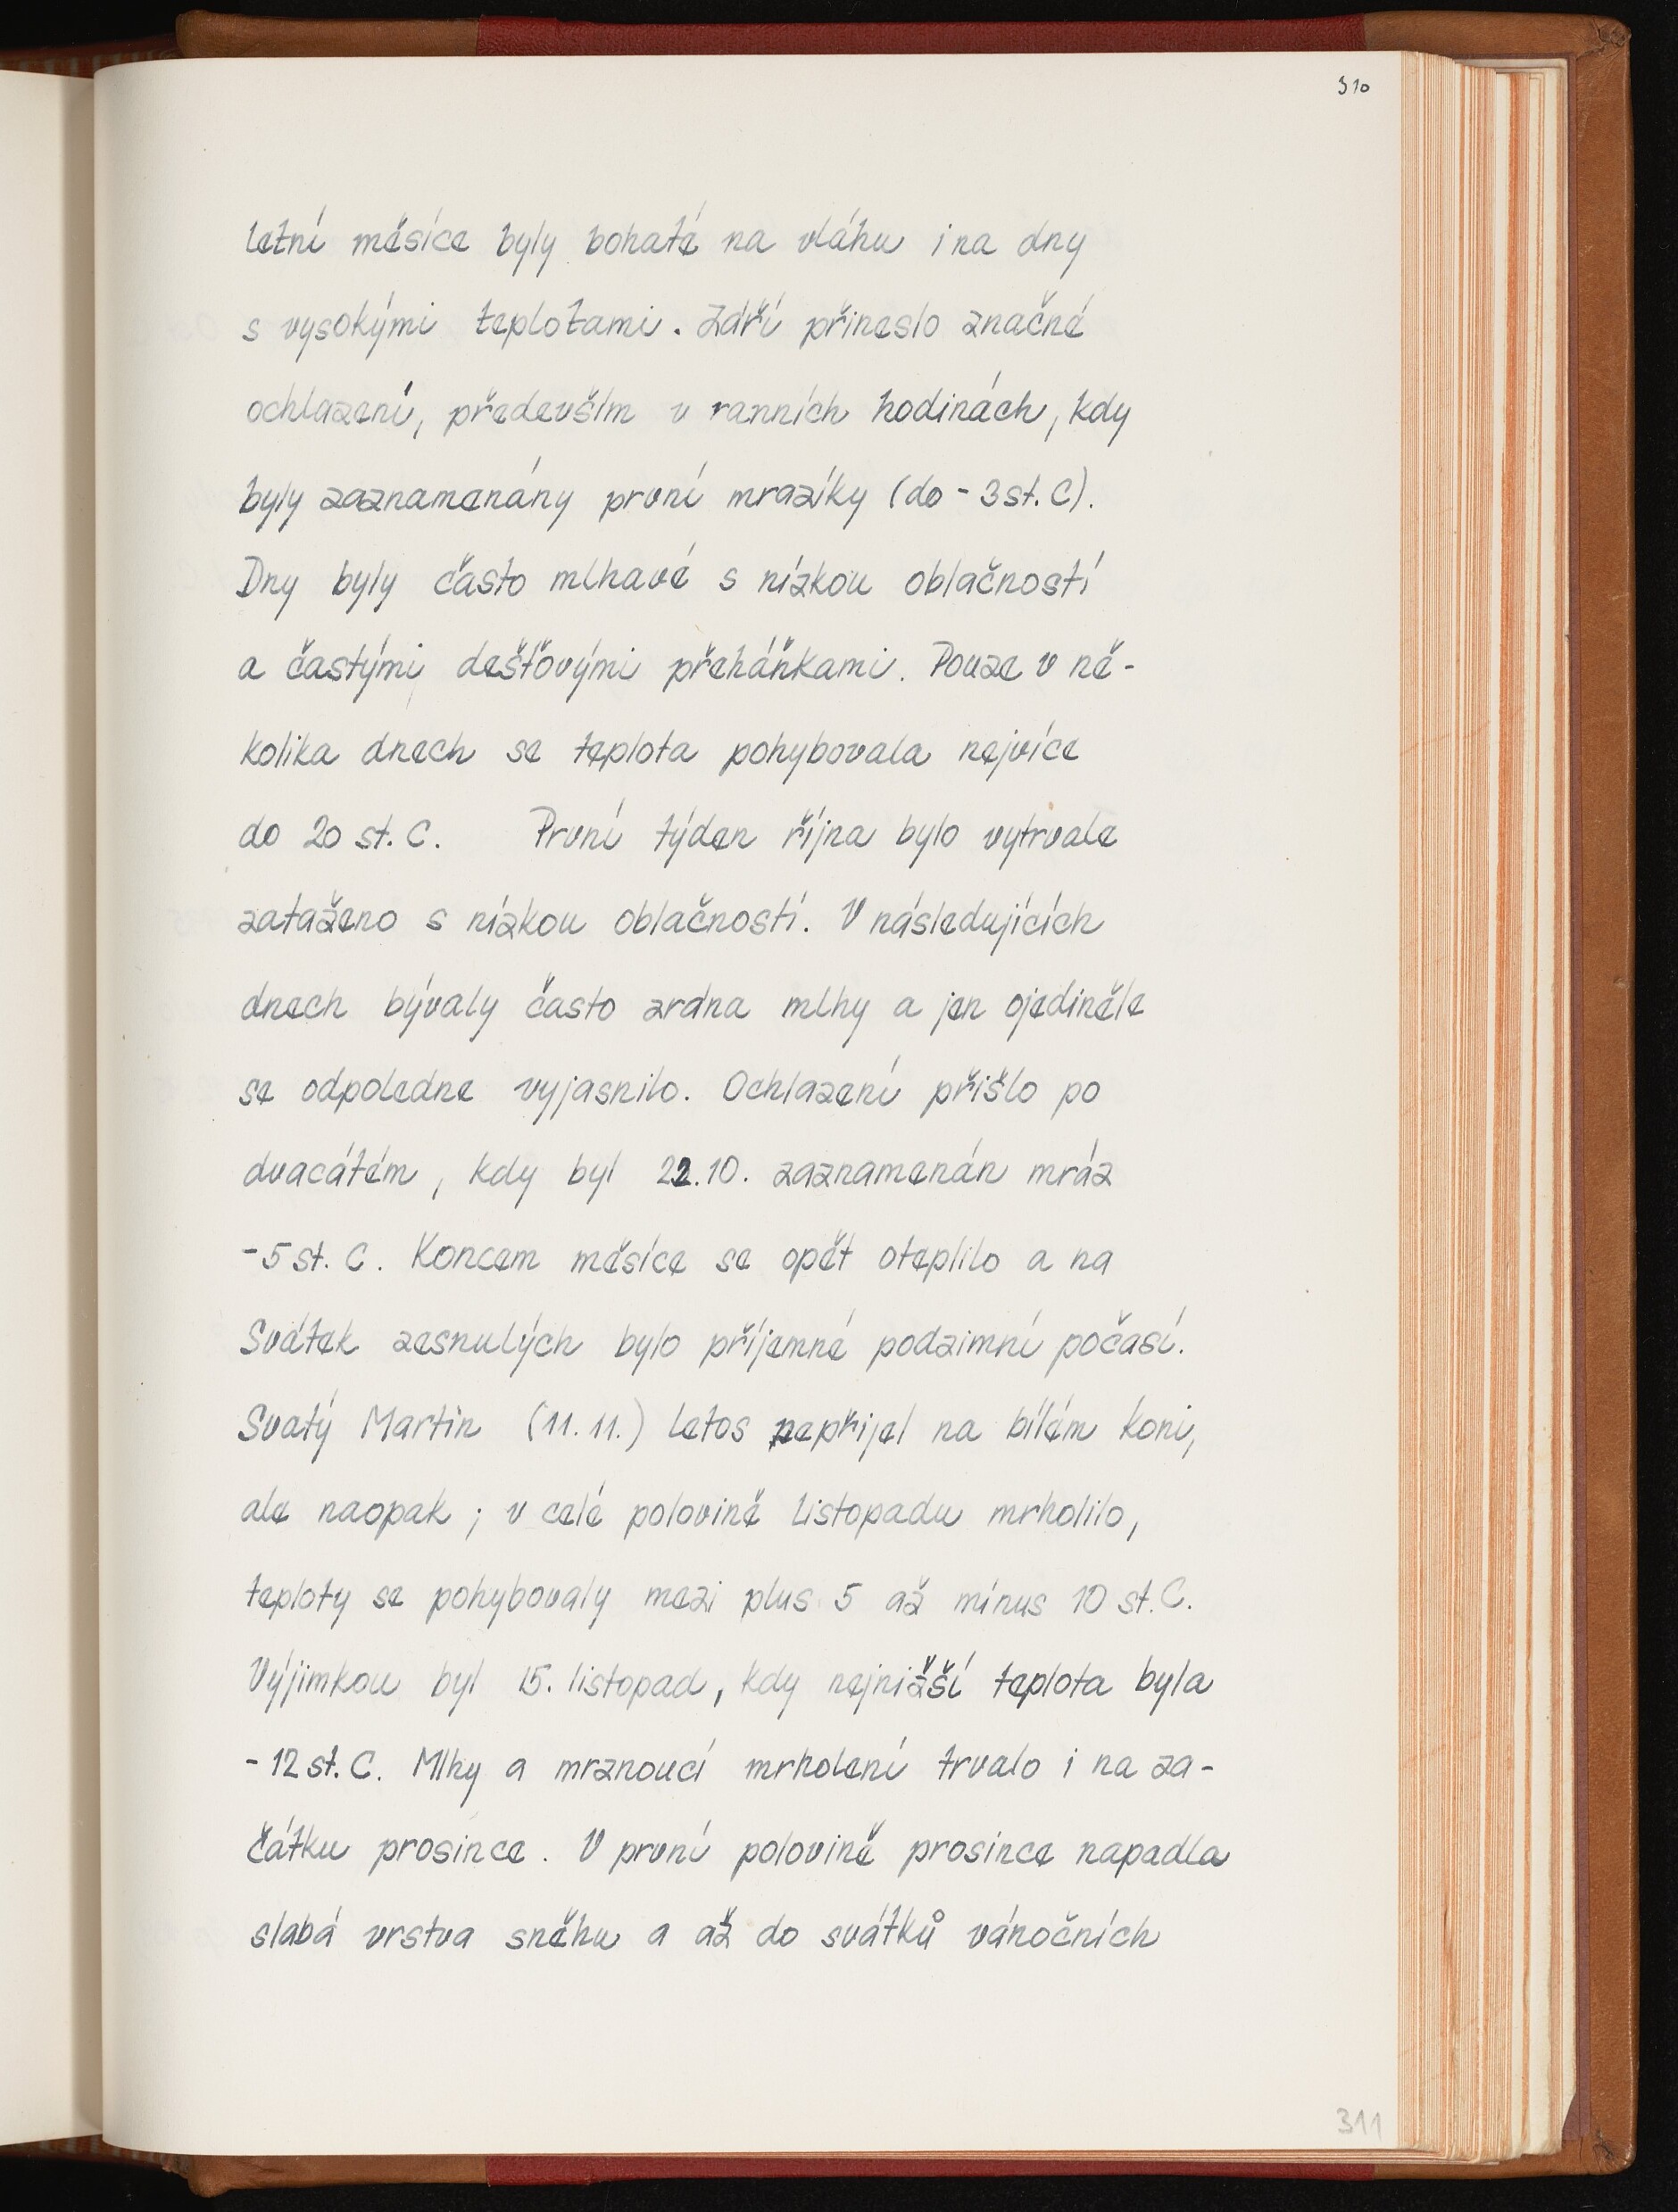 310
letní měsíce byly bohaté na vláhu i na dny
s vysokými teplotami. Září přineslo značné
ochlazení, především v ranních hodinách, kdy
byly zaznamenány první mrazíky (do -3 st. C).
Dny byly často mlhavé s nízkou oblačností
a častými dešťovými přeháňkami. Pouze v ně-
kolika dnech se teplota pohybovala nejvíce
do 20 st. C. První týden října bylo vytrvale
zataženo s nízkou oblačností. V následujících
dnech bývaly často zrána mlhy a jen ojediněle
se odpoledne vyjasnilo. Ochlazení přišlo po
dvacátém, kdy byl 22.10. zaznamenán mráz
-5 st. C. Koncem měsíce se opět oteplilo a na
Svátek zesnulých bylo příjemné podzimní počasí.
Svatý Martin (11. 11.) letos nepřijel na bílém koni,
ale naopak; v celé polovině listopadu mrholilo,
teploty se pohybovaly mezi plus 5 až mínus 10 st. C.
Výjimkou byl 15. listopad, kdy nejnižší teplota byla
-12 st. C. Mlhy a mrznoucí mrholení trvalo i na za-
čátku prosince. V první polovině prosince napadla
slabá vrstva sněhu a až do svátků vánočních
311